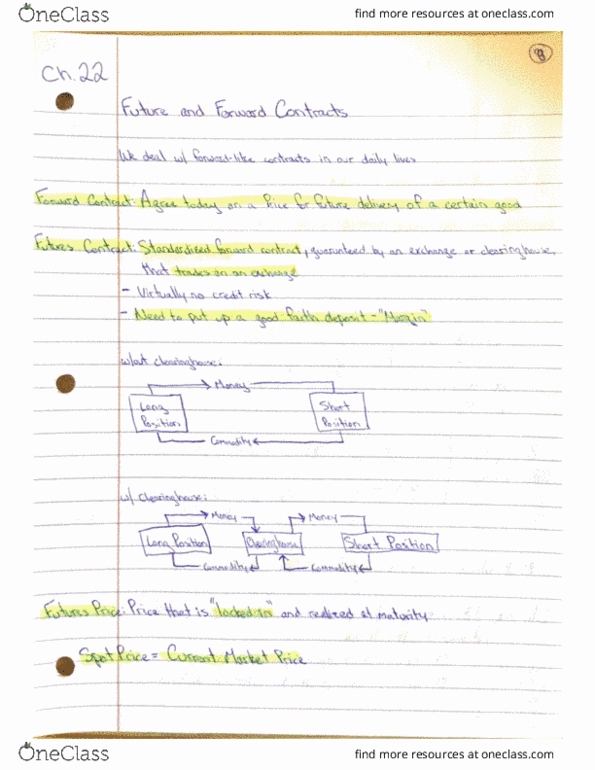 OneClass
find more resources at oneclass.com
8
Ch.22
Future and Forward Contracts
We deal w/ forward-like contracts in our daily lives
Forward Contract: Agree today on a Price for future delivery of a certain good
Futures Contract: Standardized forward contract, guaranteed by an exchange or clearinghouse,
that trades on an exchange
- Virtually no credit risk
- Need to put up a good faith deposit - "Margin"
w/out clearinghouse:
Money
Long Position
Short Position
Commodity
w/ clearinghouse:
Money Money
Long Position Clearinghouse Short Position
Commodity Commodity
Futures Price: Price that is "locked in" and realized at maturity
Spot Price = Current Market Price
OneClass
find more resources at oneclass.com